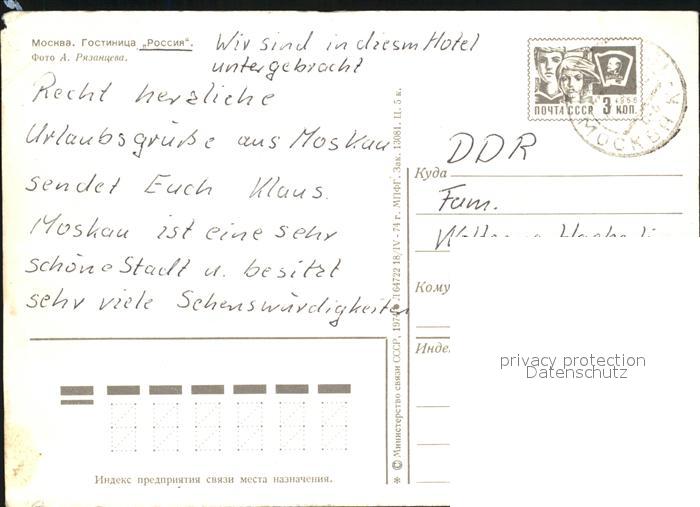 Москва. Гостиница „Россия“.
Фото А. Рязанцева.
Wir sind in diesm Hotel
untergebracht
Recht herzliche
Urlaubsgrüße aus Moskau
sendet Euch Klaus.
Moskau ist eine sehr
schöne Stadt u. besitzt
sehr viele Sehenswürdigkeiten
Индекс предприятия связи места назначения.
* © Министерство связи СССР, 1974 г. Л 64722 18/IV - 74 г. МПФГ. Зак. 13081. Ц. 5 к.
1966
ПОЧТА СССР 3 КОП.
МОСКВА
DDR
Куда
Fam.
Кому
Инде
privacy protection
Datenschutz